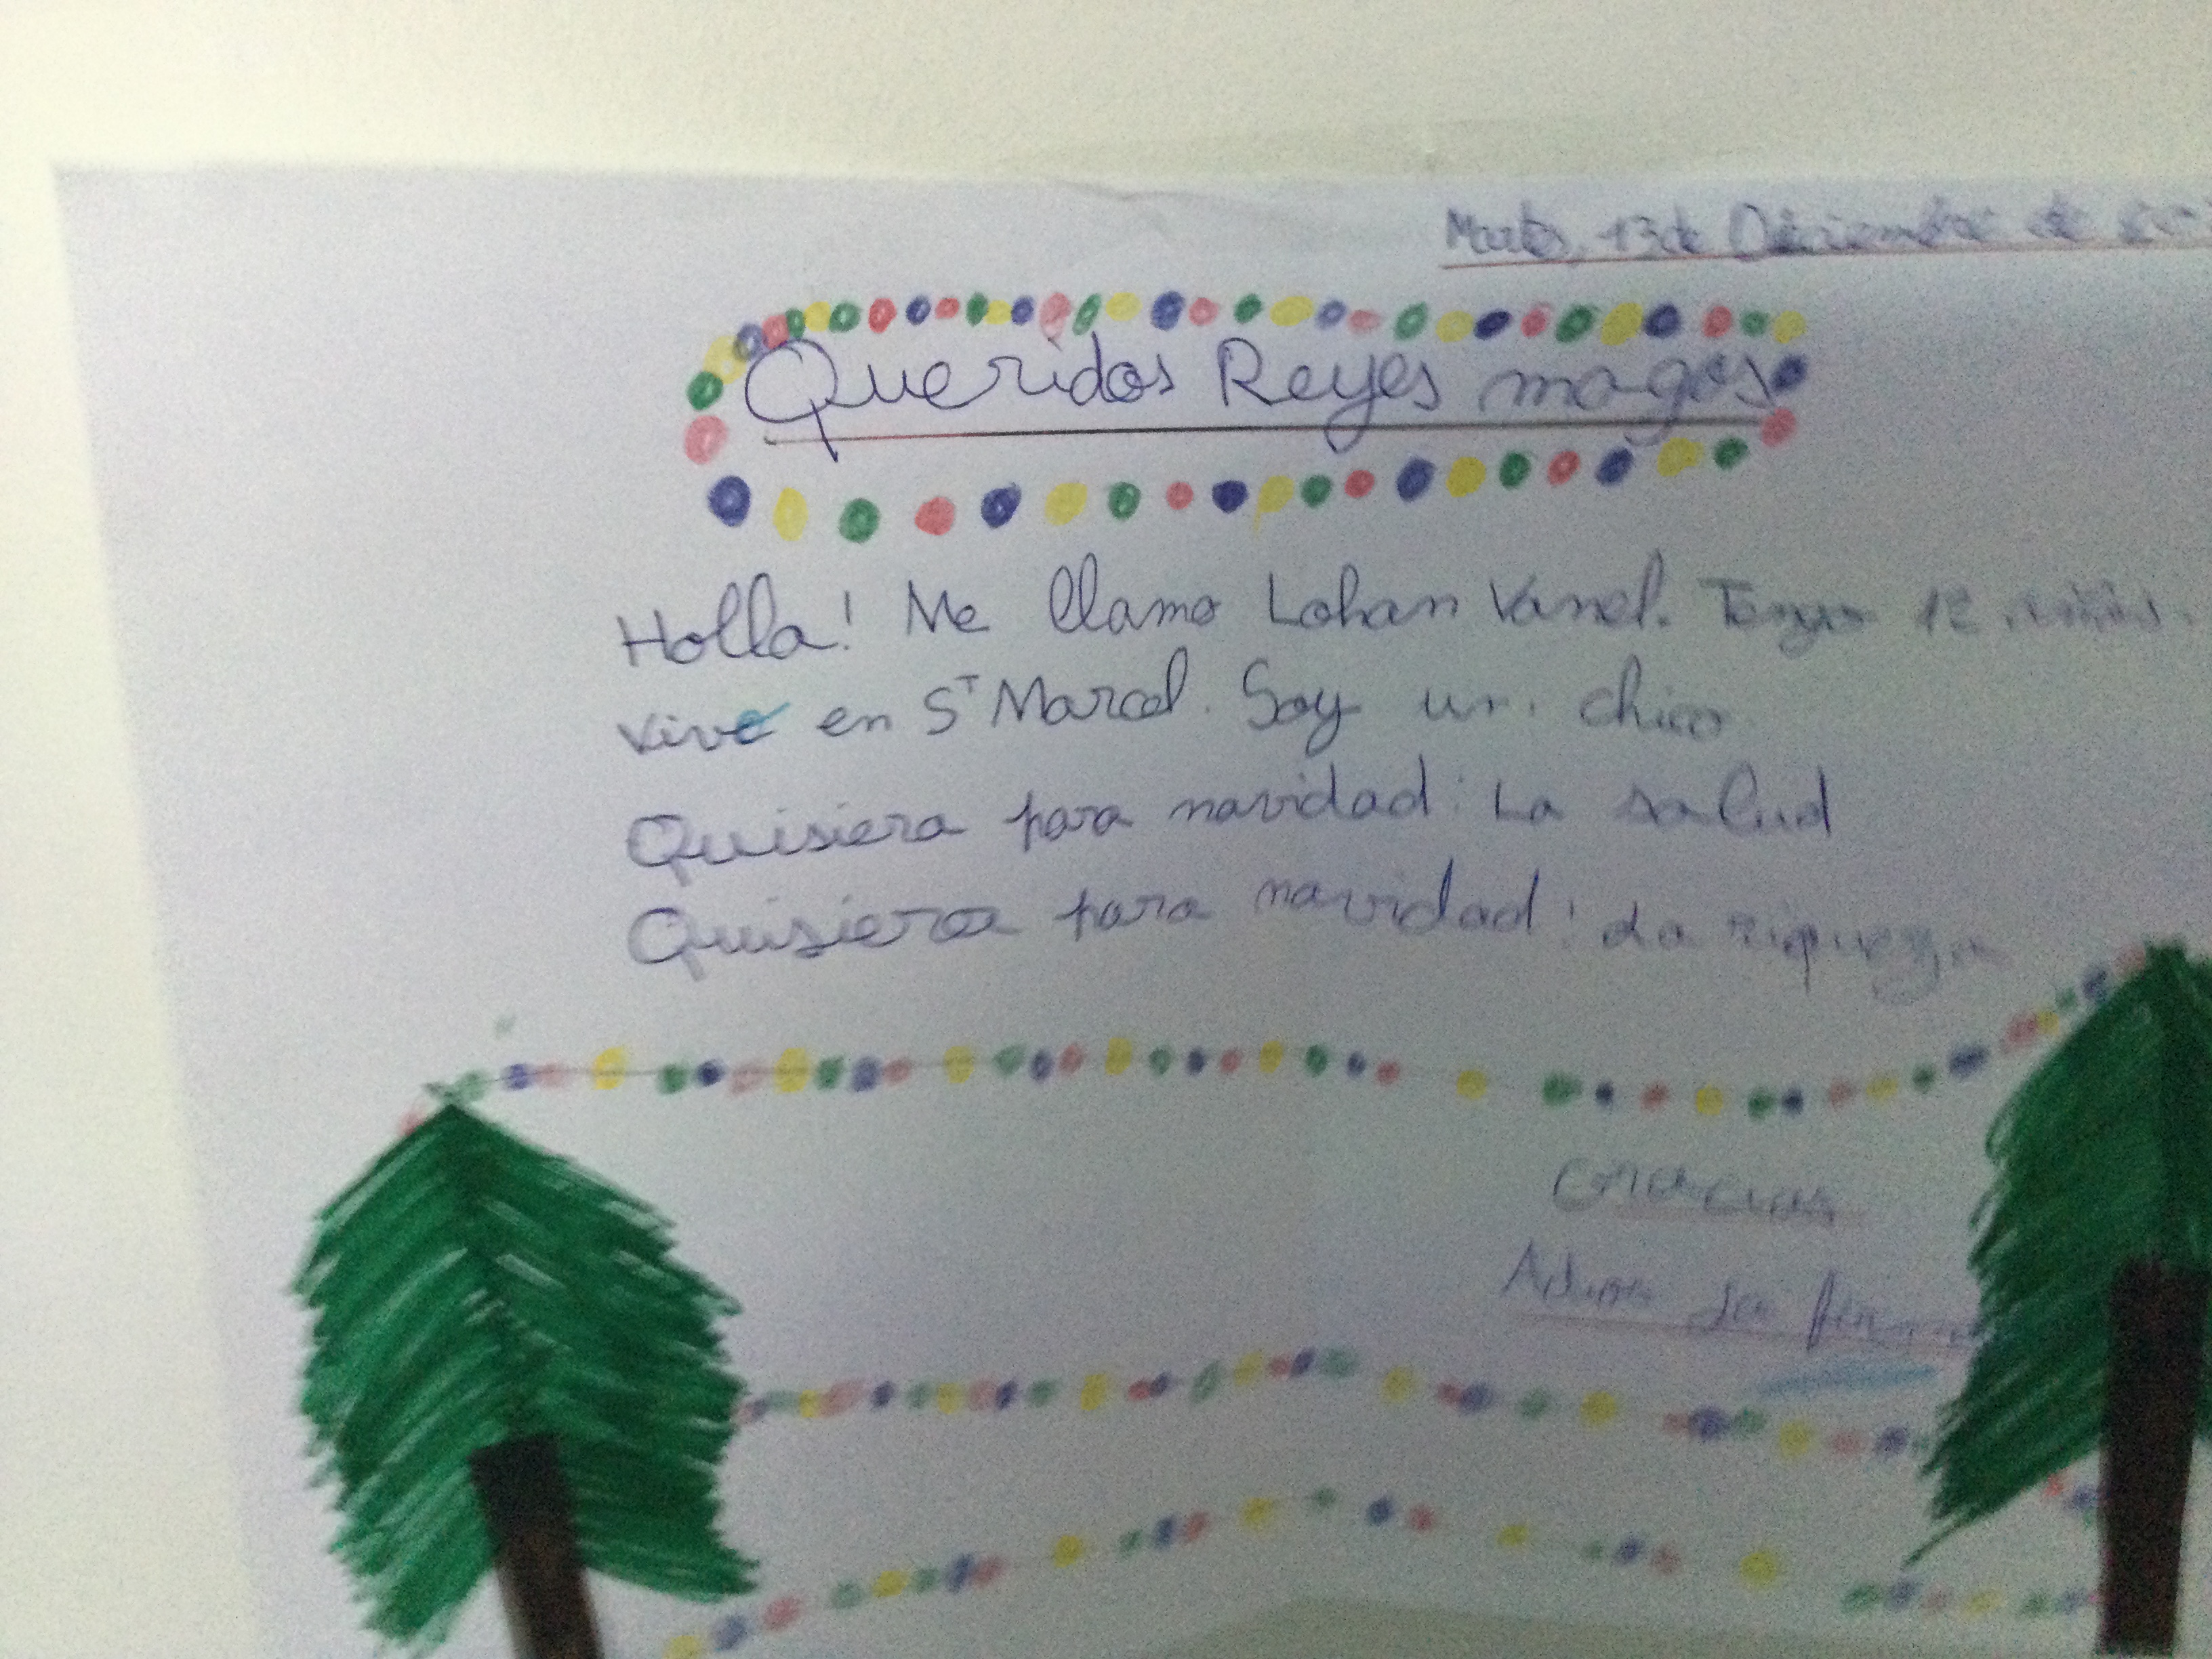 Martes, 13 de Diciembre de
Queridos Reyes magos
Holla! Me llamo Lohan Vanel. Tengo 12
vivo en S^T Marcel. Soy un chico
Quisiera para navidad: La salud
Quisiera para navidad: La riqueza
Gracias